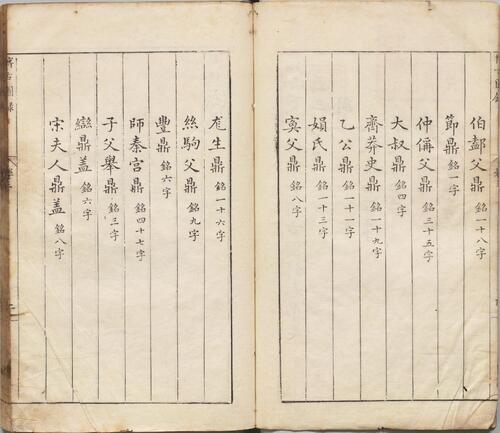 伯父鼎 銘一十八字
節鼎 銘一字
仲偁父鼎 銘三十五字
大叔鼎 銘四字
齊莽史鼎 銘一十九字
乙公鼎 銘一十一字
娟氏鼎 銘一十三字
寅父鼎 銘八字
生鼎 銘一十六字
絲駒父鼎 銘九字
豐鼎 銘六字
師秦宮鼎 銘四十七字
子父舉鼎 銘三字
鼎蓋 銘六字
宋夫人鼎蓋 銘八字